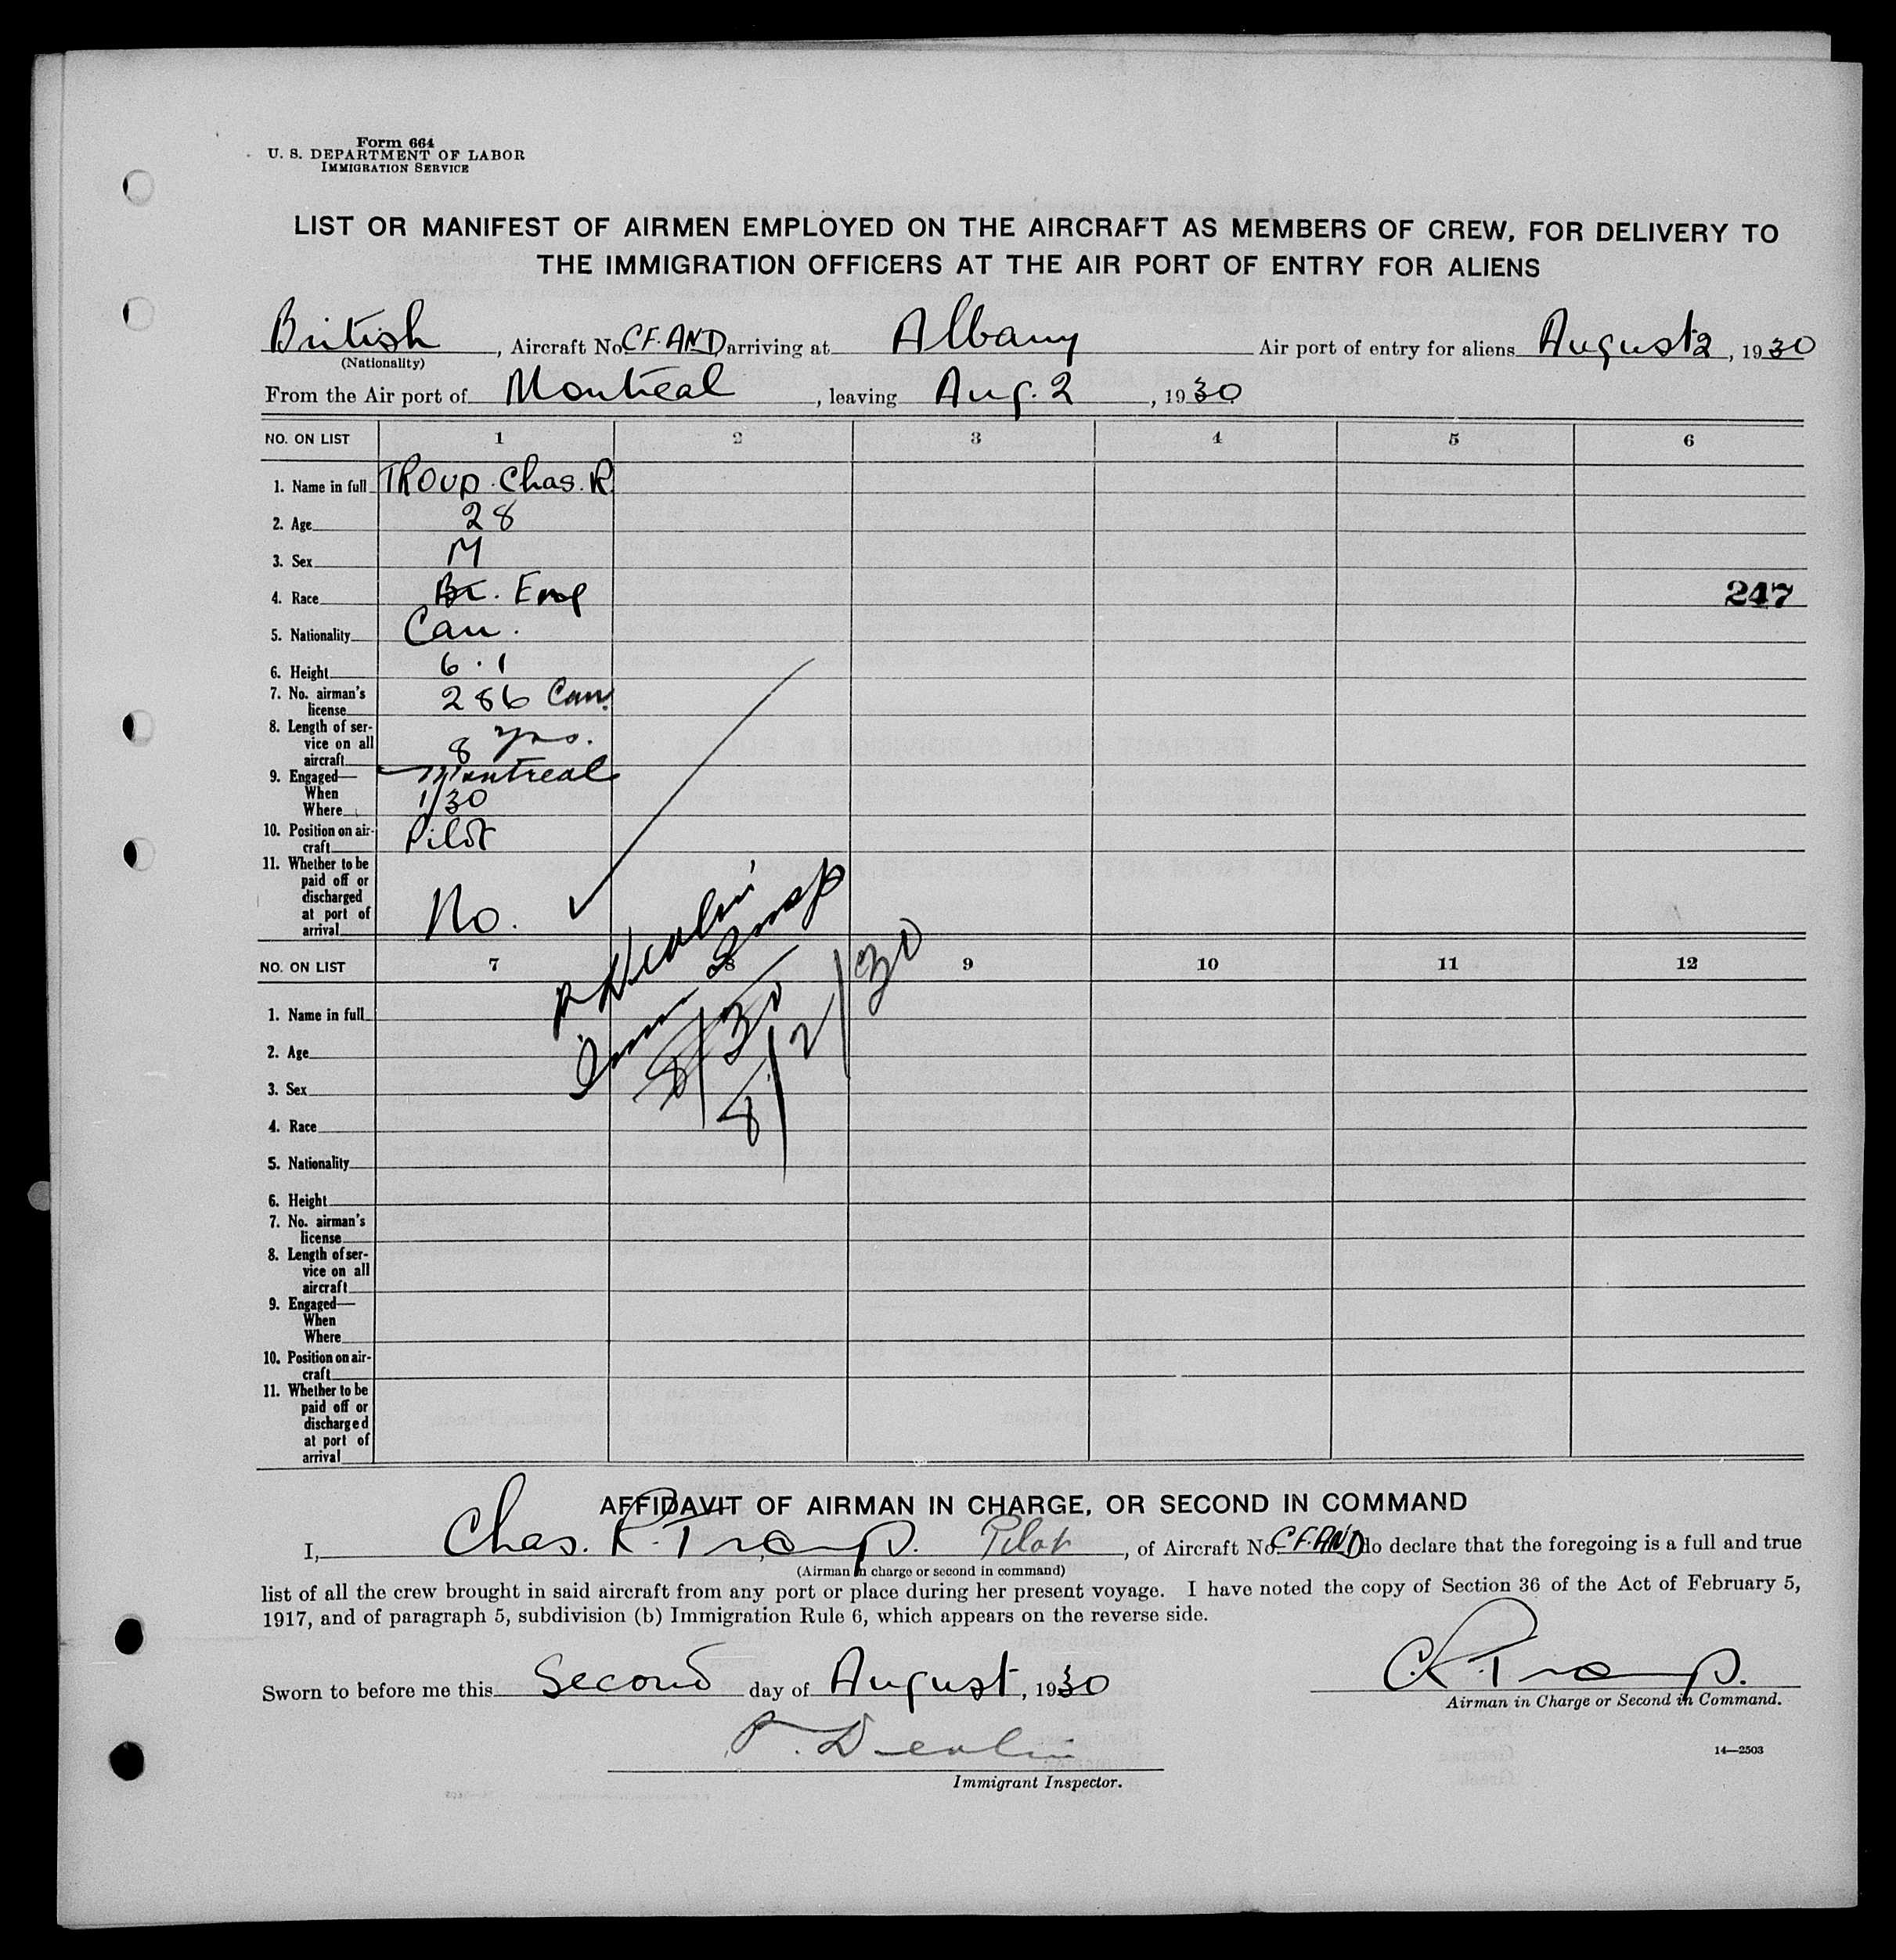 Form 664
U. S. DEPARTMENT OF LABOR
IMMIGRATION SERVICE
LIST OR MANIFEST OF AIRMEN EMPLOYED ON THE AIRCRAFT AS MEMBERS OF CREW, FOR DELIVERY TO
THE IMMIGRATION OFFICERS AT THE AIR PORT OF ENTRY FOR ALIENS
British, Aircraft No. CF.AND arriving at Albany Air port of entry for aliens August 2, 1930
(Nationality)
From the Air port of Montreal, leaving Aug. 2, 1930
NO. ON LIST 1 2 3 4 5 6
1. Name in full TROUP. Chas. R.
2. Age 28
3. Sex M
4. Race Eng 247
5. Nationality Can.
6. Height 6.1
7. No. airman's
license 286 Can.
8. Length of ser-
vice on all
aircraft 8 yrs.
9. Engaged— Montreal
When
Where 1/30
10. Position on air-
craft Pilot
11. Whether to be
paid off or
discharged
at port of
arrival No.
P. Devlin
Imm Insp
8/30
8/2/30
NO. ON LIST 7 8 9 10 11 12
1. Name in full
2. Age
3. Sex
4. Race
5. Nationality
6. Height
7. No. airman's
license
8. Length of ser-
vice on all
aircraft
9. Engaged—
When
Where
10. Position on air-
craft
11. Whether to be
paid off or
discharged
at port of
arrival
AFFIDAVIT OF AIRMAN IN CHARGE, OR SECOND IN COMMAND
I, Chas. R. Troup. Pilot, of Aircraft No. CF.AND do declare that the foregoing is a full and true
(Airman in charge or second in command)
list of all the crew brought in said aircraft from any port or place during her present voyage. I have noted the copy of Section 36 of the Act of February 5,
1917, and of paragraph 5, subdivision (b) Immigration Rule 6, which appears on the reverse side.
Sworn to before me this Second day of August, 1930
C.R. Troup.
Airman in Charge or Second in Command.
P. Devlin
Immigrant Inspector.
14—2503